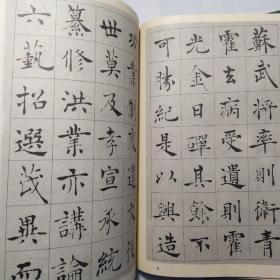 蘇武將率則衛青
霍去病受遺則霍
光金日磾其餘不
可勝紀是以興造
功業制度遺文後
世莫及孝宣承統
纂修洪業亦講論
六藝招選茂異而